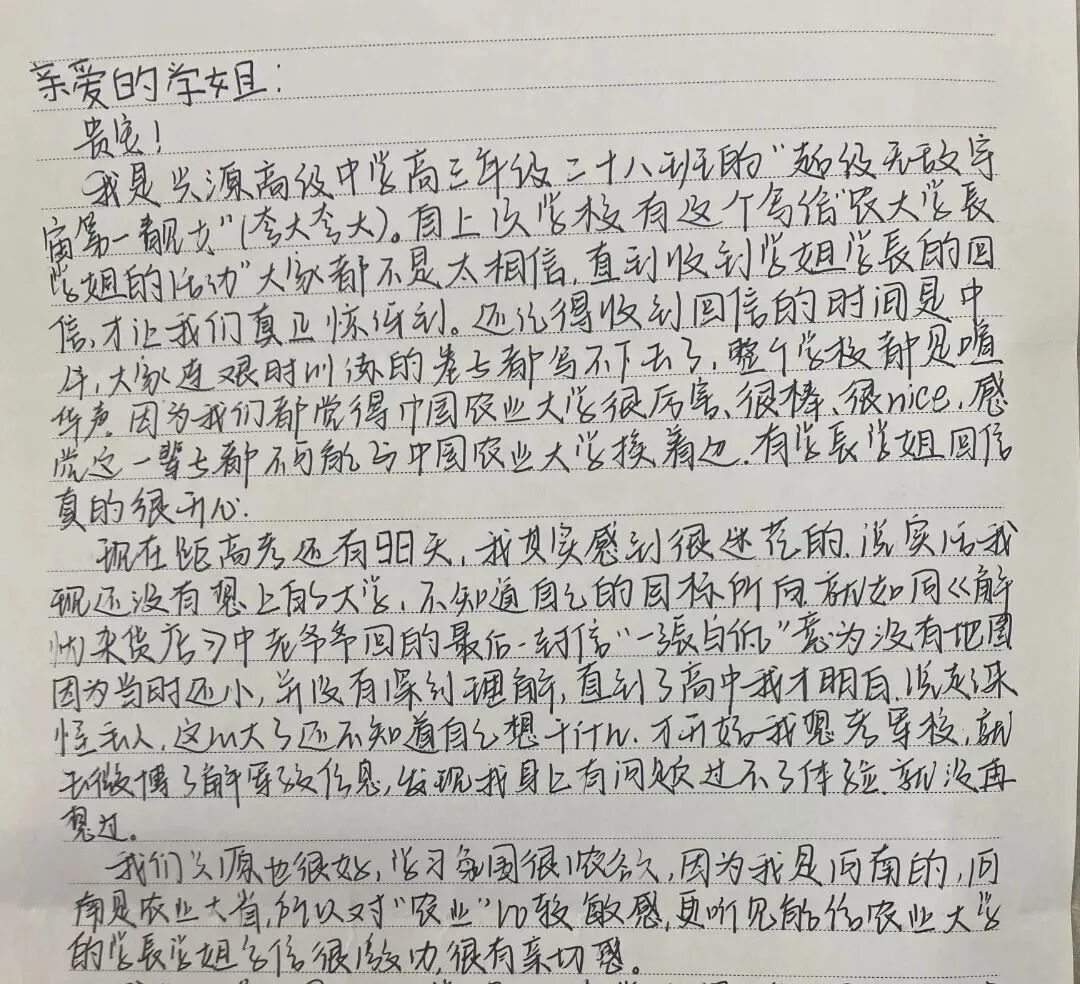 亲爱的学姐：
贵安！
我是兴源高级中学高三年级二十八班的“超级无敌宇
宙第一靓女”(夸大夸大)。自上次学校有这个写给“农大学長
学姐的活动”大家都不是太相信，直到收到学姐学長的回
信，才让我们真正惊讶到。还记得收到回信的时间是中
午，大家连限时训练的卷子都写不下去了，整个学校都是喧
华声。因为我们都觉得中国农业大学很厉害、很棒、很nice，感
觉这一辈子都不可能与中国农业大学挨着边，有学長学姐回信
真的很开心.
现在距高考还有98天，我其实感到很迷茫的，说实话我
现还没有想上的大学，不知道自己的目标所向，就如同《解
忧杂货店》中老爷爷回的最后一封信“一張白纸”意为没有地图
因为当时还小，并没有深刻理解，直到了高中我才明白，说起来
怪丢人，这么大了还不知道自己想干什么，才开始我想考军校，就
去微博了解军校信息，发现我身上有问题过不了体验，就没再
想过。
我们兴源也很好，学习氛围很浓谷欠，因为我是河南的，河
南是农业大省，所以对“农业”比较敏感，更听见能给农业大学
的学長学姐写信很激动，很有亲切感。